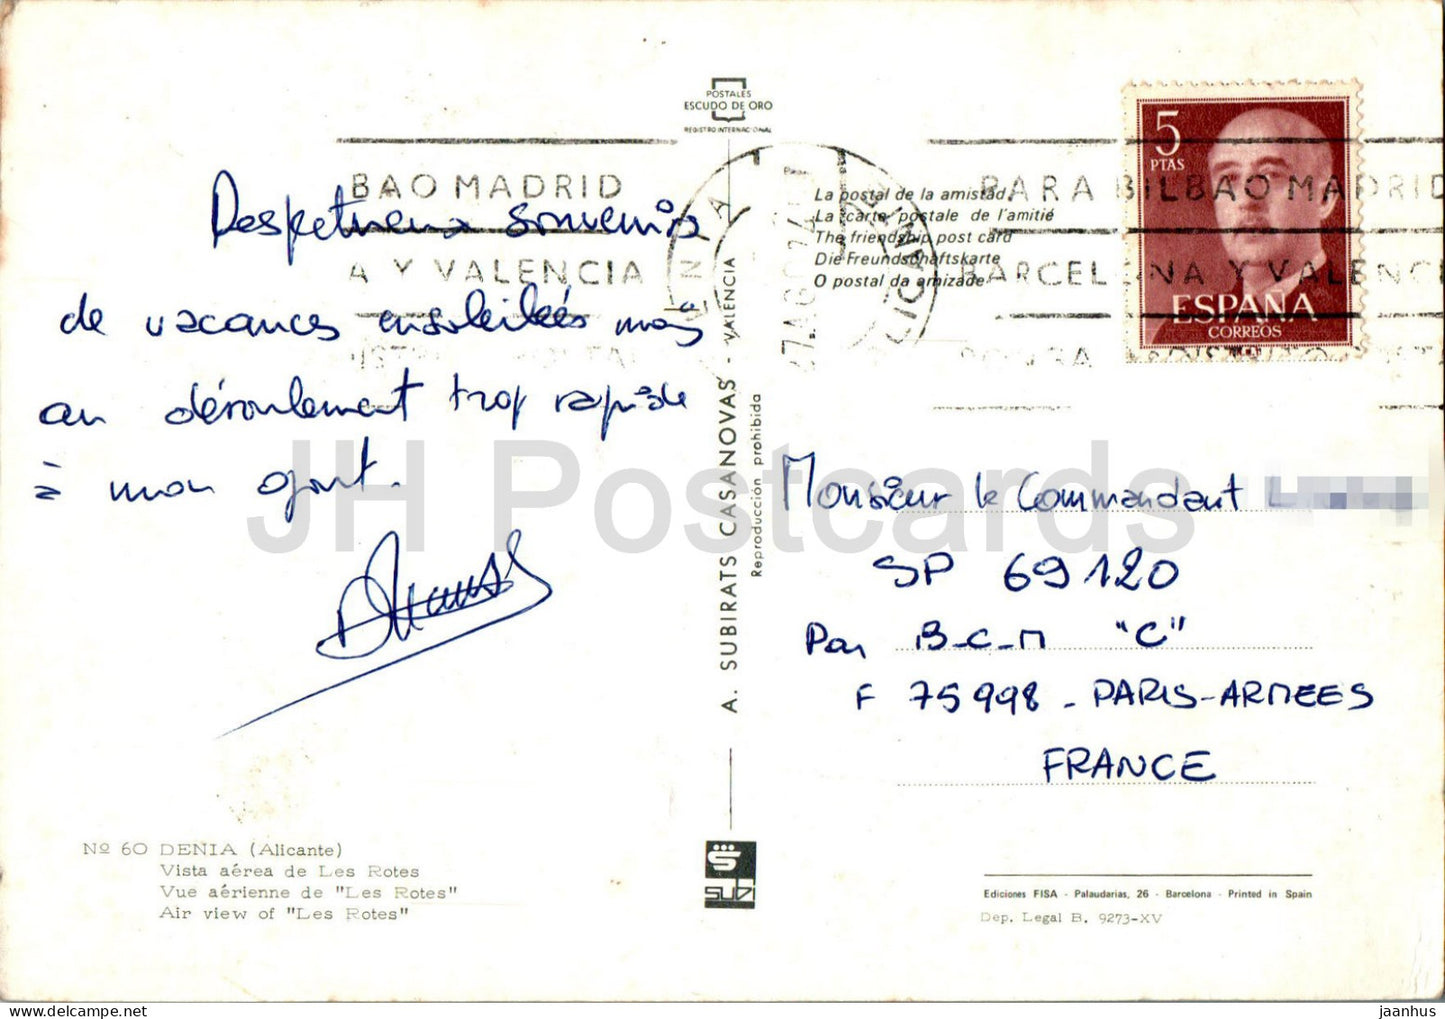 POSTALES
ESCUDO DE ORO
REGISTRO INTERNACIONAL
BAO MADRID
A Y VALENCIA
Respectueux souvenirs
de vacances ensoleillées mais
au déroulement trop rapide
à mon goût.
DENIA
ALICANTE
La postal de la amistad
La carte postale de l'amitié
The friendship post card
Die Freundschaftskarte
O postal da amizade
PARA BILBAO MADRID
BARCELONA Y VALENCI
5
PTAS
ESPAÑA
CORREOS
A. SUBIRATS CASANOVAS - VALENCIA
Reproducción prohibida
JH Postcards
Monsieur le Commandant
SP 69120
Par B-C-M "C"
F 75998 - PARIS-ARMEES
FRANCE
Nº 60 DENIA (Alicante)
Vista aérea de Les Rotes
Vue aérienne de "Les Rotes"
Air view of "Les Rotes"
SUBI
Ediciones FISA - Palaudarias, 26 - Barcelona - Printed in Spain
Dep. Legal B. 9273-XV
jaanhus